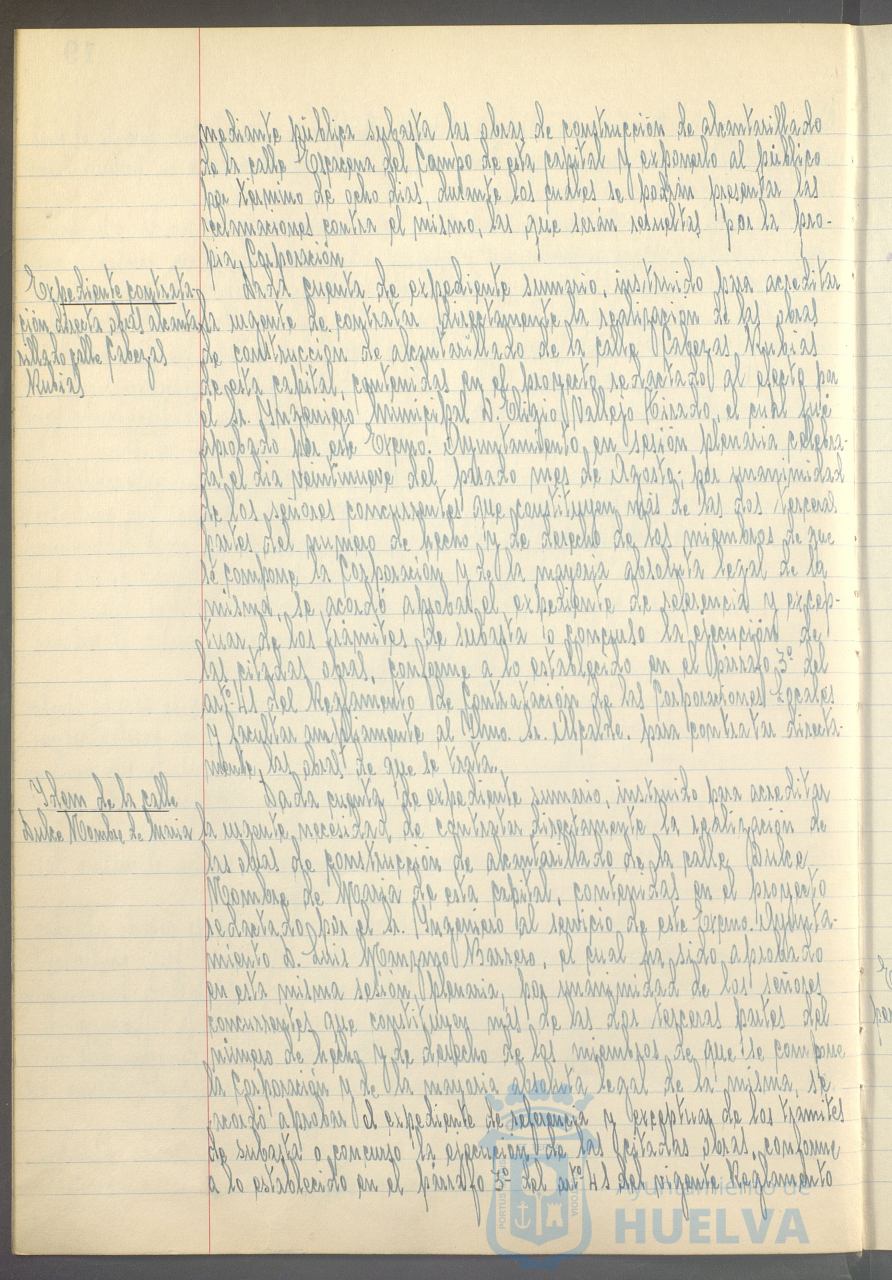 mediante pública subasta las obras de construcción de alcantarillado
de la calle Escacena del Campo de esta capital y exponerlo al público
por término de ocho días, durante los cuales se podrán presentar las
reclamaciones contra el mismo, las que serán resueltas por la pro-
pia Corporación
Expediente contrata-
ción directa obras alcanta
rillado calle Cabezas
Rubias
Dada cuenta de expediente sumario, instruido para acreditar
la urgente de contratar directamente la realización de las obras
de construcción de alcantarillado de la calle Cabezas Rubias
de esta capital, contenidas en el proyecto redactado al efecto por
el Sr. Ingeniero Municipal D. Eligio Vallejo Tirado, el cual fué
aprobado por este Excmo. Ayuntamiento en sesión plenaria celebra-
da el día veintinueve del pasado mes de Agosto; por unanimidad
de los señores concurrentes que constituyen más de las dos terceras
partes del número de hecho y de derecho de los miembros de que
se compone la Corporación y de la mayoría absoluta legal de la
misma, se acordó aprobar el expediente de referencia y excep-
tuar, de los trámites de subasta o concurso la ejecución de
las citadas obras, conforme a lo establecido en el párrafo 3º del
artº 41 del Reglamento de Contratación de las Corporaciones Locales
y facultar ampliamente al Iltmo. Sr. Alcalde. para contratar directa-
mente, las obras de que se trata.
Idem de la calle
Dulce Nombre de María
Dada cuenta de expediente sumario, instruido para acreditar
la urgente necesidad de contratar directamente la realización de
las obras de construcción de alcantarillado de la calle Dulce
Nombre de María de esta capital, contenidas en el proyecto
redactado por el Sr. Ingeniero al servicio de este Excmo. Ayunta-
miento D. Luis Manzano Barrero, el cual ha sido aprobado
en esta misma sesión plenaria, por unanimidad de los señores
concurrentes que constituyen más de las dos terceras partes del
número de hecho y de derecho de los miembros de que se compone
la Corporación y de la mayoría absoluta legal de la misma, se
acordó aprobar el expediente de referencia y exceptuar de los tramites
de subasta o concurso la ejecución de las citadas obras, conforme
a lo establecido en el párrafo 3º del artº 41 del vigente Reglamento
Ayuntamiento de
HUELVA